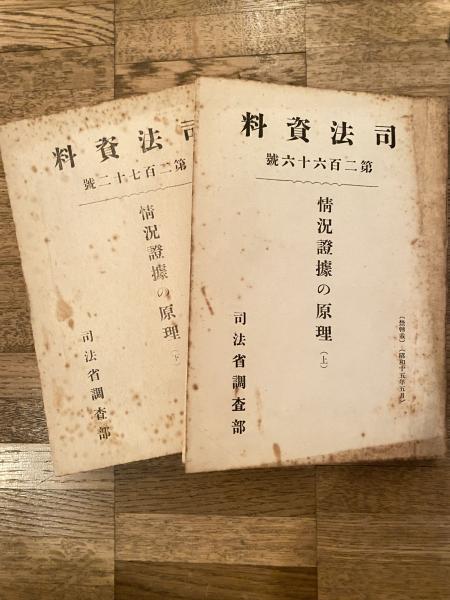 司法資料
第二百六十六號
（禁轉載）（昭和十五年五月）
情況證據の原理（上）
司法省調査部
司法資料
第二百七十二號
情況證據の原理（下）
司法省調査部